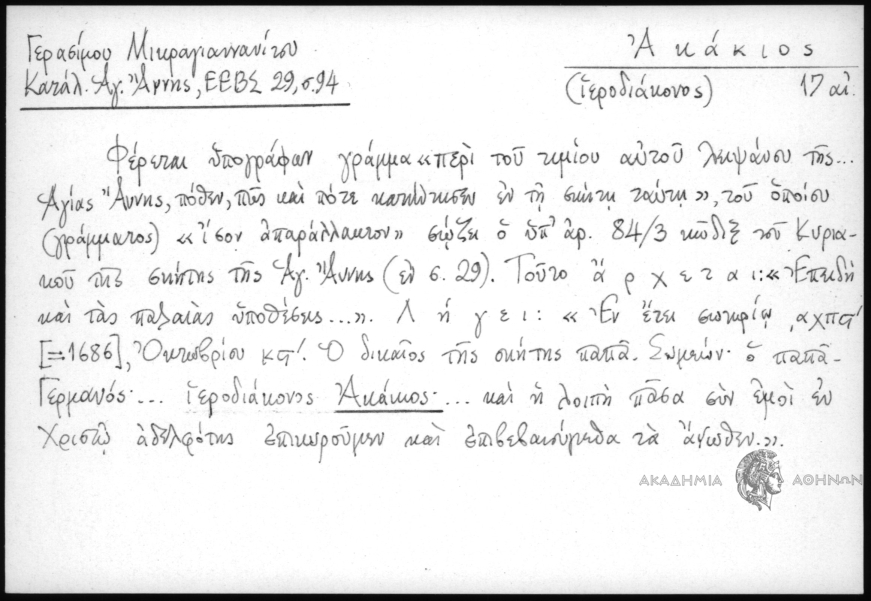 Γερασίμου Μικραγιαννανίτου
Κατάλ. Ἁγ. Ἄννης, ΕΕΒΣ 29, σ. 94
Ἀκάκιος
(ἱεροδιάκονος) 17 αἰ.
Φέρεται ὑπογράφων γράμμα «περὶ τοῦ τιμίου αὐτοῦ λειψάνου τῆς...
Ἁγίας Ἄννης, πόθεν, πῶς καὶ πότε κατήντησεν ἐν τῇ σκήτῃ ταύτῃ», τοῦ ὁποίου
(γράμματος) «ἴσον ἀπαράλλακτον» σῴζει ὁ ὑπ' ἀρ. 84/3 κῶδιξ τοῦ Κυρια-
κοῦ τῆς σκήτης τῆς Ἁγ. Ἄννης (ἐν σ. 29). Τοῦτο ἄρχεται: «Ἐπειδὴ
καὶ τὰς παλαιὰς ὑποθέσεις...». Λήγει: «Ἐν ἔτει σωτηρίῳ ͵αχπϛ'
[=1686], Ὀκτωβρίου κϛ'. Ὁ δικαῖος τῆς σκήτης παπᾶ-Συμεών· ὁ παπᾶ-
Γερμανός· ... ἱεροδιάκονος Ἀκάκιος· ... καὶ ἡ λοιπὴ πᾶσα σὺν ἐμοὶ ἐν
Χριστῷ ἀδελφότης ἐπικυροῦμεν καὶ ἐπιβεβαιούμεθα τὰ ἄνωθεν.».
ΑΚΑΔΗΜΙΑ ΑΘΗΝΩΝ